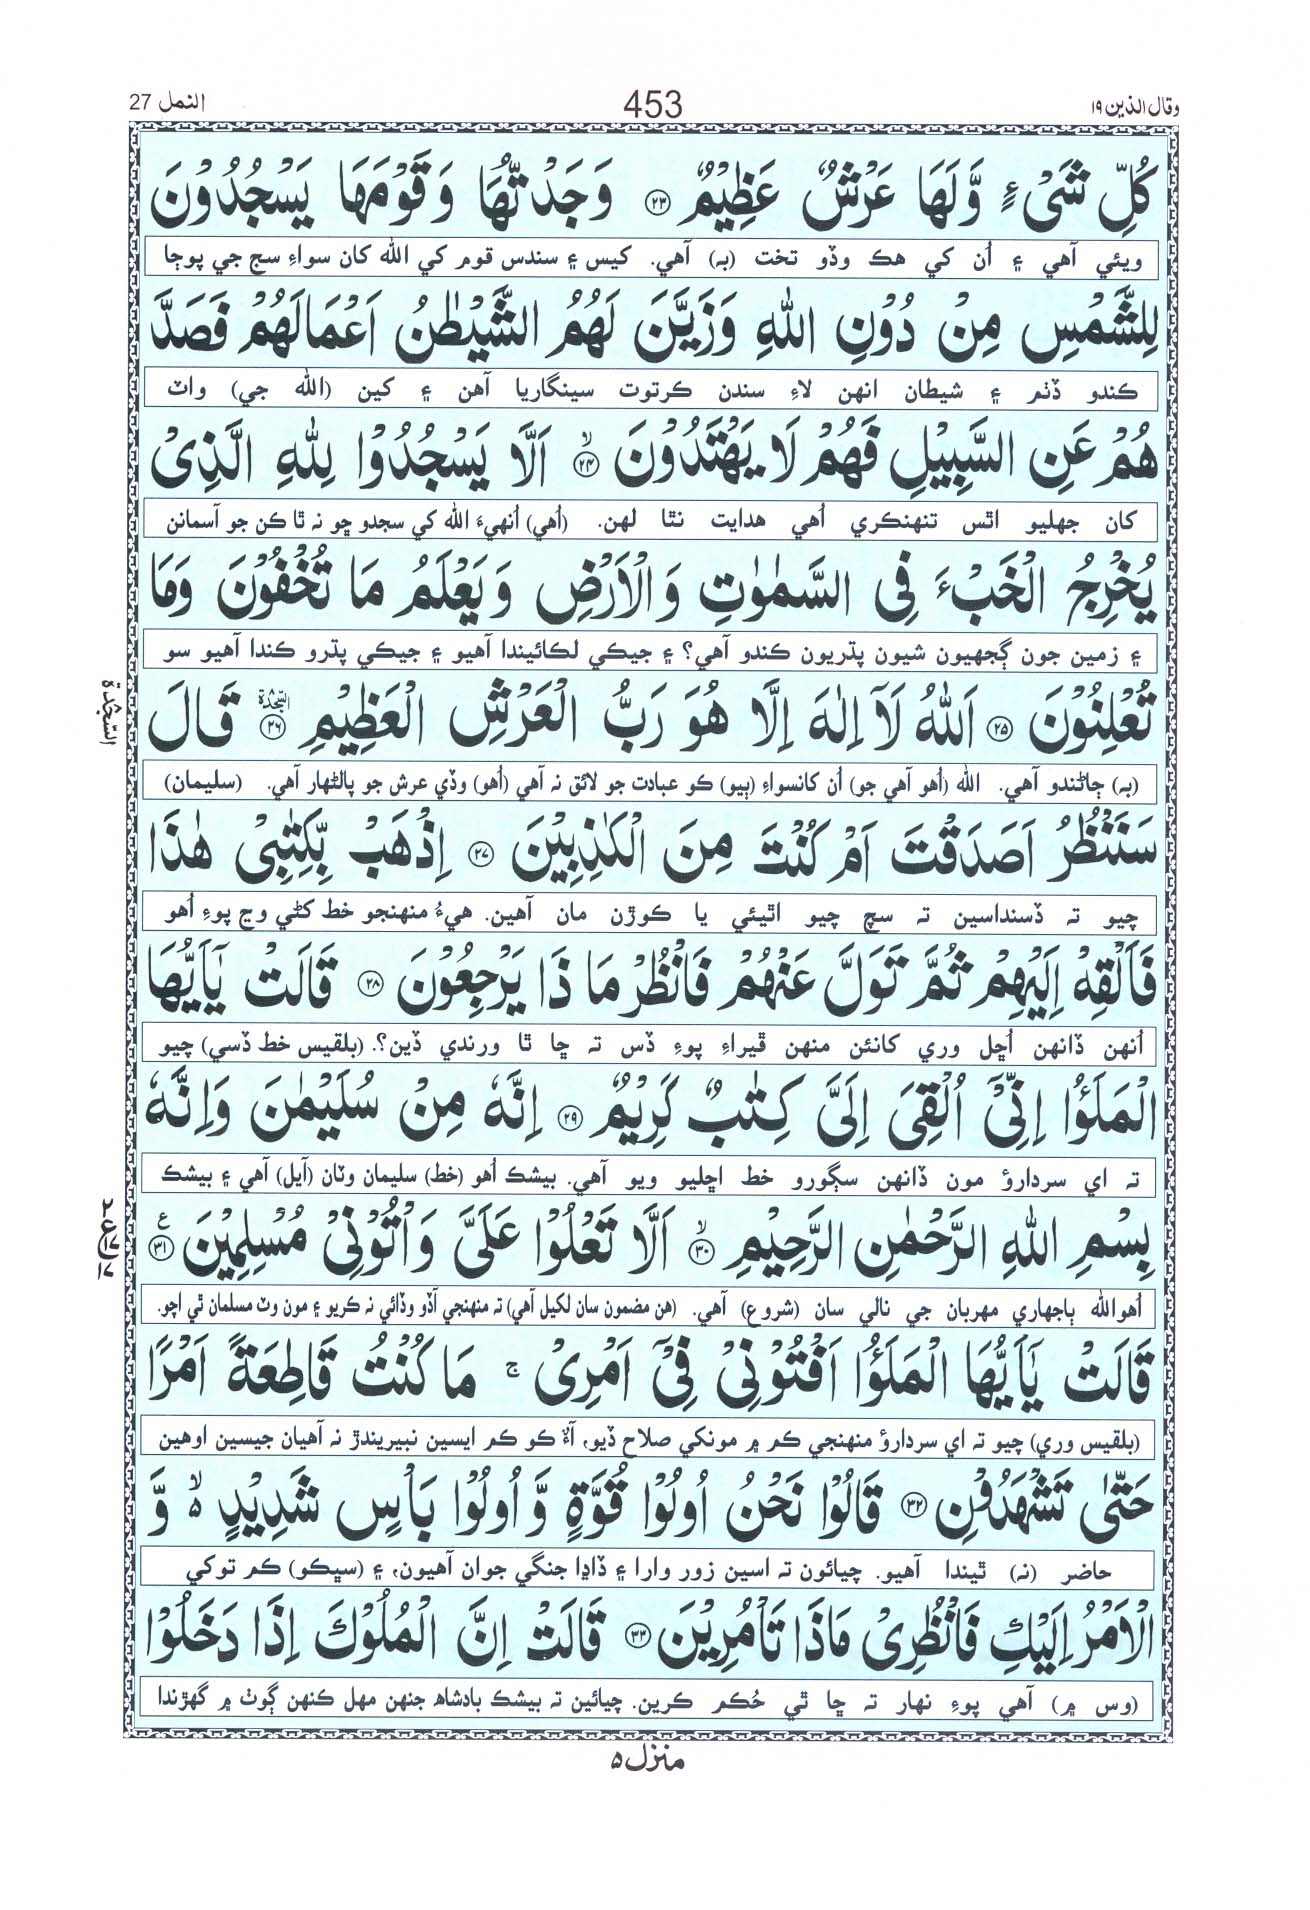 وقال الذین ۱۹
453
النمل 27
كُلِّ شَیْءٍ وَّلَهَا عَرْشٌ عَظِیْمٌ ۲۳ وَجَدْتُّهَا وَقَوْمَهَا یَسْجُدُوْنَ
ويئي آهي ۽ اُن کي هڪ وڏو تخت (به) آهي. کيس ۽ سندس قوم کي الله کان سواءِ سج جي پوڄا
لِلشَّمْسِ مِنْ دُوْنِ اللّٰهِ وَزَیَّنَ لَهُمُ الشَّیْطٰنُ اَعْمَالَهُمْ فَصَدَّ
ڪندو ڏٺم ۽ شيطان انهن لاءِ سندن ڪرتوت سينگاريا آهن ۽ کين (الله جي) واٽ
هُمْ عَنِ السَّبِیْلِ فَهُمْ لَا یَهْتَدُوْنَ ۙ۲۴ اَلَّا یَسْجُدُوْا لِلّٰهِ الَّذِیْ
کان جهليو اٿس تنهنڪري اُهي هدايت نٿا لهن. (اُهي) اُنهيءَ الله کي سجدو ڇو نہ ٿا ڪن جو آسمانن
یُخْرِجُ الْخَبْءَ فِی السَّمٰوٰتِ وَالْاَرْضِ وَیَعْلَمُ مَا تُخْفُوْنَ وَمَا
۽ زمين جون ڳجهيون شيون پڌريون ڪندو آهي؟ ۽ جيڪي لڪائيندا آهيو ۽ جيڪي پڌرو ڪندا آهيو سو
تُعْلِنُوْنَ ۲۵ اَللّٰهُ لَاۤ اِلٰهَ اِلَّا هُوَ رَبُّ الْعَرْشِ الْعَظِیْمِ ۲۶ السّجدة قَالَ
السّجدة
(به) ڄاڻندو آهي. الله (اُهو آهي جو) اُن کانسواءِ (ٻيو) ڪو عبادت جو لائق نہ آهي (اُهو) وڏي عرش جو پالڻهار آهي. (سليمان)
سَنَنْظُرُ اَصَدَقْتَ اَمْ كُنْتَ مِنَ الْكٰذِبِیْنَ ۲۷ اِذْهَبْ بِّكِتٰبِیْ هٰذَا
چيو تہ ڏسنداسين تہ سچ چيو اٿيئي يا ڪوڙن مان آهين. هيءُ منهنجو خط کڻي وڃ پوءِ اُهو
فَاَلْقِهْ اِلَیْهِمْ ثُمَّ تَوَلَّ عَنْهُمْ فَانْظُرْ مَا ذَا یَرْجِعُوْنَ ۲۸ قَالَتْ یٰۤاَیُّهَا
اُنهن ڏانهن اُڇل وري کانئن منهن ڦيراءِ پوءِ ڏس تہ ڇا ٿا ورندي ڏين؟. (بلقيس خط ڏسي) چيو
الْمَلَؤُا اِنِّیْۤ اُلْقِیَ اِلَیَّ كِتٰبٌ كَرِیْمٌ ۲۹ اِنَّهٗ مِنْ سُلَیْمٰنَ وَاِنَّهٗ
تہ اي سردارؤ مون ڏانهن سڳورو خط اڇليو ويو آهي. بيشڪ اُهو (خط) سليمان وٽان (آيل) آهي ۽ بيشڪ
بِسْمِ اللّٰهِ الرَّحْمٰنِ الرَّحِیْمِ ۙ۳۰ اَلَّا تَعْلُوْا عَلَیَّ وَاْتُوْنِیْ مُسْلِمِیْنَ ۳۱ ع
اُهوالله ٻاجهاري مهربان جي نالي سان (شروع) آهي. (هن مضمون سان لکيل آهي) تہ منهنجي آڏو وڏائي نہ ڪريو ۽ مون وٽ مسلمان ٿي اچو.
قَالَتْ یٰۤاَیُّهَا الْمَلَؤُا اَفْتُوْنِیْ فِیْۤ اَمْرِیْ ۚ مَا كُنْتُ قَاطِعَةً اَمْرًا
(بلقيس وري) چيو تہ اي سردارؤ منهنجي ڪم ۾ مونکي صلاح ڏيو، آءٌ ڪو ڪم ايسين نبيريندڙ نہ آهيان جيسين اوهين
حَتّٰی تَشْهَدُوْنِ ۳۲ قَالُوْا نَحْنُ اُولُوْا قُوَّةٍ وَّاُولُوْا بَاْسٍ شَدِیْدٍ ۙ۬ وَّ
حاضر (نہ) ٿيندا آهيو. چيائون تہ اسين زور وارا ۽ ڏاڍا جنگي جوان آهيون، ۽ (سڀڪو) ڪم توکي
الْاَمْرُ اِلَیْكِ فَانْظُرِیْ مَاذَا تَاْمُرِیْنَ ۳۳ قَالَتْ اِنَّ الْمُلُوْكَ اِذَا دَخَلُوْا
(وس ۾) آهي پوءِ نهار تہ ڇا ٿي حُڪم ڪرين. چيائين تہ بيشڪ بادشاه جنهن مهل ڪنهن ڳوٺ ۾ گهڙندا
منزل ۵